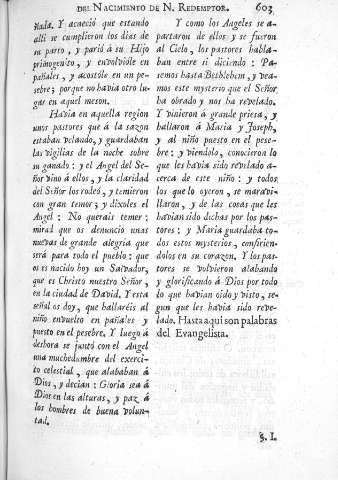 DEL NACIMIENTO DE N. REDEMPTOR. 603
ñada. Y acaeciò que estando
alli se cumplieron los dias de
su parto, y pariò à su Hijo
primogenito, y envolviòle en
pañales, y acostòle en un pe-
sebre; porque no havia otro lu-
gar en aquel meson.
Havia en aquella region
unos pastores que à la sazon
estaban velando, y guardaban
las vigilias de la noche sobre
su ganado: y el Angel del Se-
ñor vino à ellos, y la claridad
del Señor los rodeò, y temieron
con gran temor; y dixoles el
Angel: No querais temer:
mirad que os denuncio unas
nuevas de grande alegria que
serà para todo el pueblo: que
os es nacido hoy un Salvador,
que es Christo nuestro Señor,
en la ciudad de David. Y esta
señal os doy, que hallareis al
niño envuelto en pañales y
puesto en el pesebre. Y luego à
deshora se juntò con el Angel
una muchedumbre del exerci-
to celestial, que alababan à
Dios, y decian: Gloria sea à
Dios en las alturas, y paz à
los hombres de buena volun-
tad.
Y como los Angeles se a-
partaron de ellos y se fueron
al Cielo, los pastores habla-
ban entre si diciendo: Pa-
semos hasta Bethlehem, y vea-
mos este mysterio que el Señor
ha obrado y nos ha revelado.
Y vinieron à grande priesa, y
hallaron à Maria y Joseph,
y al niño puesto en el pese-
bre: y viendolo, conocieron lo
que les havia sido revelado a-
cerca de este niño: y todos
los que lo oyeron, se maravi-
llaron, y de las cosas que les
havian sido dichas por los pas-
tores: y Maria guardaba to-
dos estos mysterios, confirien-
dolos en su corazon. Y los pas-
tores se volvieron alabando
y glorificando à Dios por todo
lo que havian oido y visto, se-
gun que les havia sido reve-
lado. Hasta aqui son palabras
del Evangelista.
§. I.